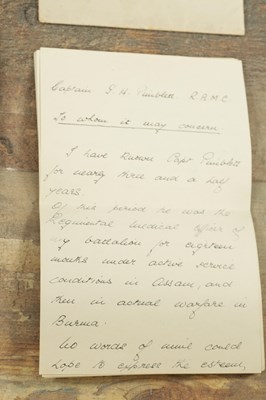 Captain G. H. Pimblett. R.A.M.C.
To whom it may concern
I have known Capt Pimblett
for nearly three and a half
years.
Of this period he was the
Regimental Medical Officer of
my battalion for eighteen
months under active service
conditions in Assam, and
then in actual warfare in
Burma.
No words of mine could
hope to express the esteem,